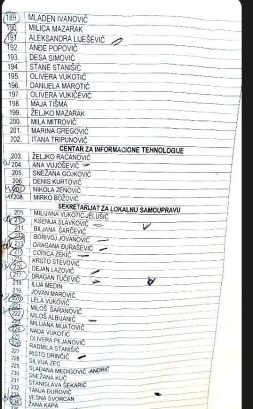 189. MLADEN IVANOVIĆ
190. MILICA MAZARAK
191. ALEKSANDRA LIJEŠEVIĆ
192. ANĐE POPOVIĆ
193. DESA SIMOVIĆ
194. STANE STANIŠIĆ
195. OLIVERA VUKOTIĆ
196. DANIJELA MAROTIĆ
197. OLIVERA VUKIČEVIĆ
198. MAJA TIŠMA
199. ŽELJKO MAZARAK
200. MILA MITROVIĆ
201. MARINA GREGOVIĆ
202. ITANA TRIPUNOVIĆ
CENTAR ZA INFORMACIONE TEHNOLOGIJE
203. ŽELJKO RACANOVIĆ
204. ANA VUJOŠEVIĆ
205. SNEŽANA GOJKOVIĆ
206. DENIS KURTOVIĆ
207. NIKOLA ZENOVIĆ
208. MIRKO BOŽOVIĆ
SEKRETARIJAT ZA LOKALNU SAMOUPRAVU
209. MILIJANA VUKOTIĆ-JELUŠIĆ
210. KSENIJA SLAVKOVIĆ
211. BILJANA ŠARČEVIĆ
212. BORIVOJ JOVANOVIĆ
213. DRAGANA ĐURAŠEVIĆ
214. GORICA ZEKIĆ
215. KRSTO STEVOVIĆ
216. DEJAN LAZOVIĆ
217. DRAGAN TUČEVIĆ
218. ILIJA MEDIN
219. JOVAN MAROVIĆ
220. LELA VUKOVIĆ
221. MILOŠ SARANOVIĆ
222. MILOŠ ALBIJANIĆ
223. MILIJANA MIJATOVIĆ
224. NADA VUKOTIĆ
225. OLIVERA PEJANOVIĆ
226. RADMILA STANIŠIĆ
227. RISTO DRINČIĆ
228. SILVIJA ZEC
229. SLAĐANA MEDIGOVIĆ-ANDRIĆ
230. SNEŽANA KUČ
231. STANISLAVA ŠEKARIĆ
232. TANJA ĐUROVIĆ
VESNA SVORCAN
ŽANA KAPA